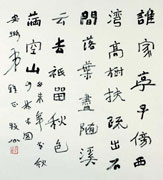 誰家亭子傍西
灣高樹扶疏出石
間落葉盡隨溪
云去祇留秋色
滿空山